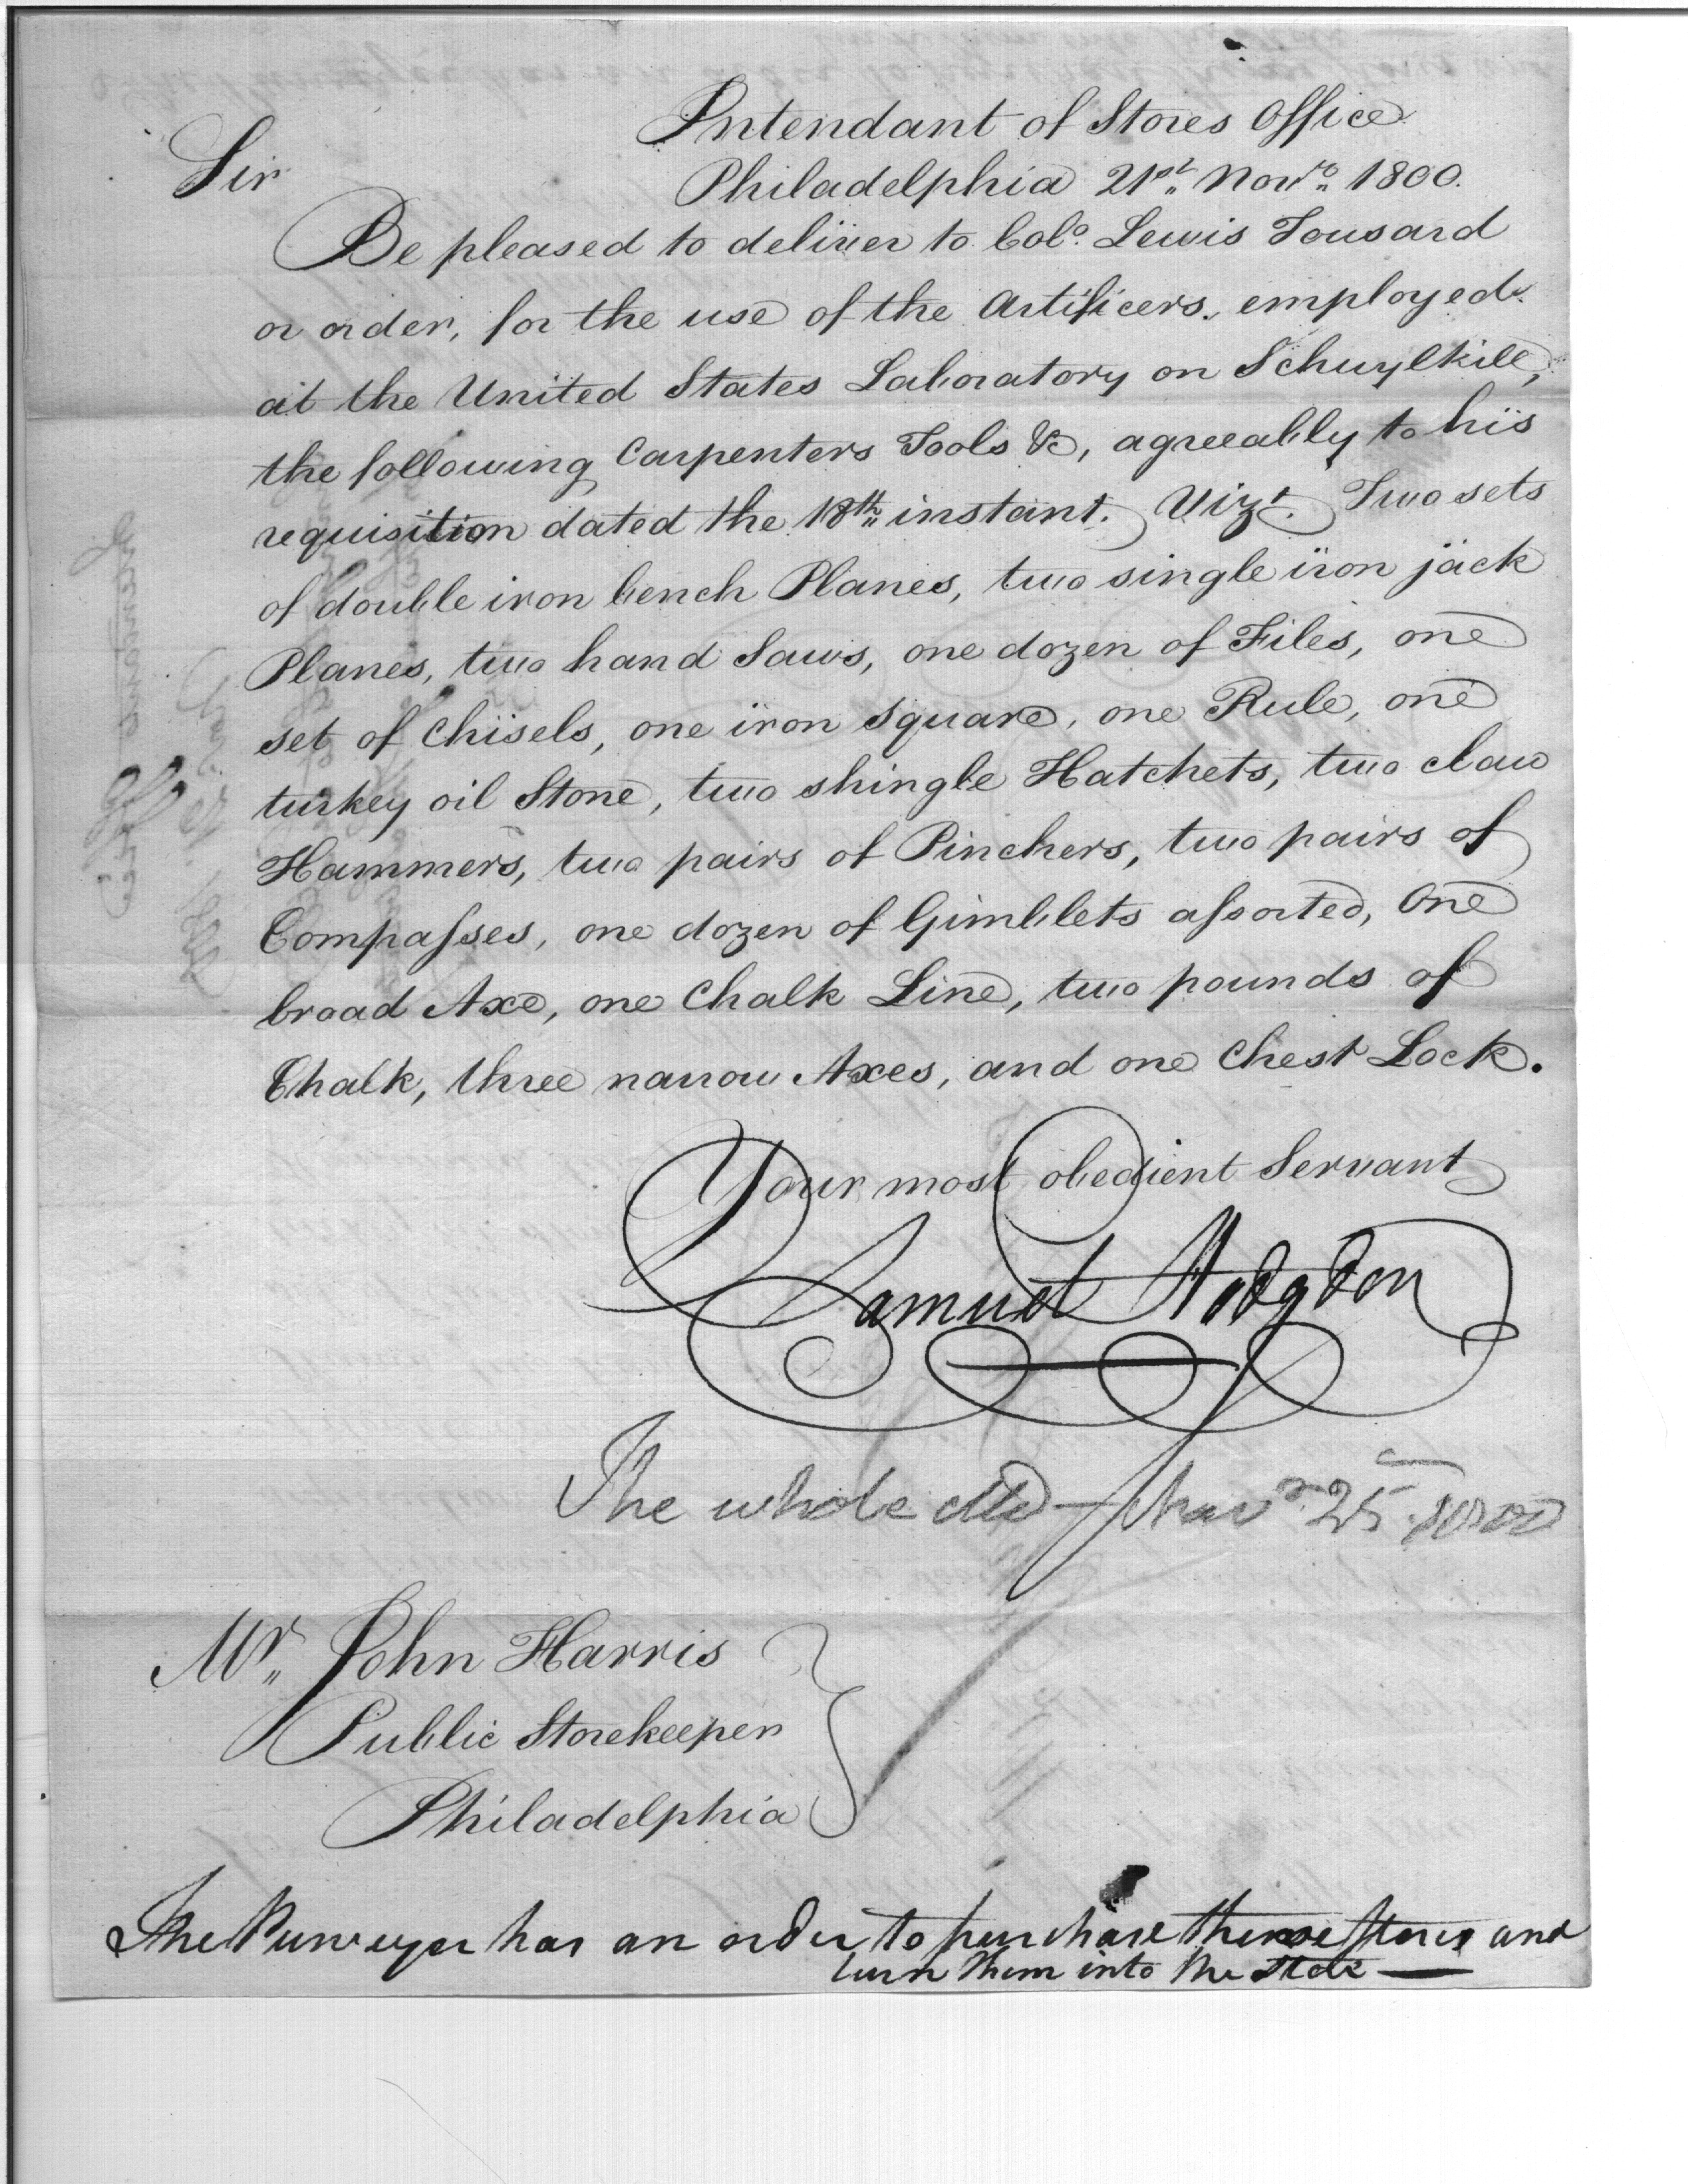 Intendant of Stores Office
Sir Philadelphia 21st Novr 1800.
Be pleased to deliver to Colo. Lewis Tousard
or order, for the use of the Artificers, employed
at the United States Laboratory on Schuylkill,
the following Carpenters Tools &c, agreeably to his
requisition dated the 18th instant. Vizt. Two sets
of double iron bench Planes, two single iron jack
Planes, two hand Saws, one dozen of Files, one
set of Chisels, one iron square, one Rule, one
turkey oil Stone, two shingle Hatchets, two claw
Hammers, two pairs of Pinchers, two pairs of
Compasses, one dozen of Gimblets assorted, One
broad Axe, one Chalk Line, two pounds of
Chalk, three narrow Axes, and one Chest Lock.
Your most obedient Servant
Samuel Hodgdon
The whole dld Nov 25 1800
Mr. John Harris
Public Storekeeper
Philadelphia
The Purveyor has an order to purchase these Stores and
turn them into the Store